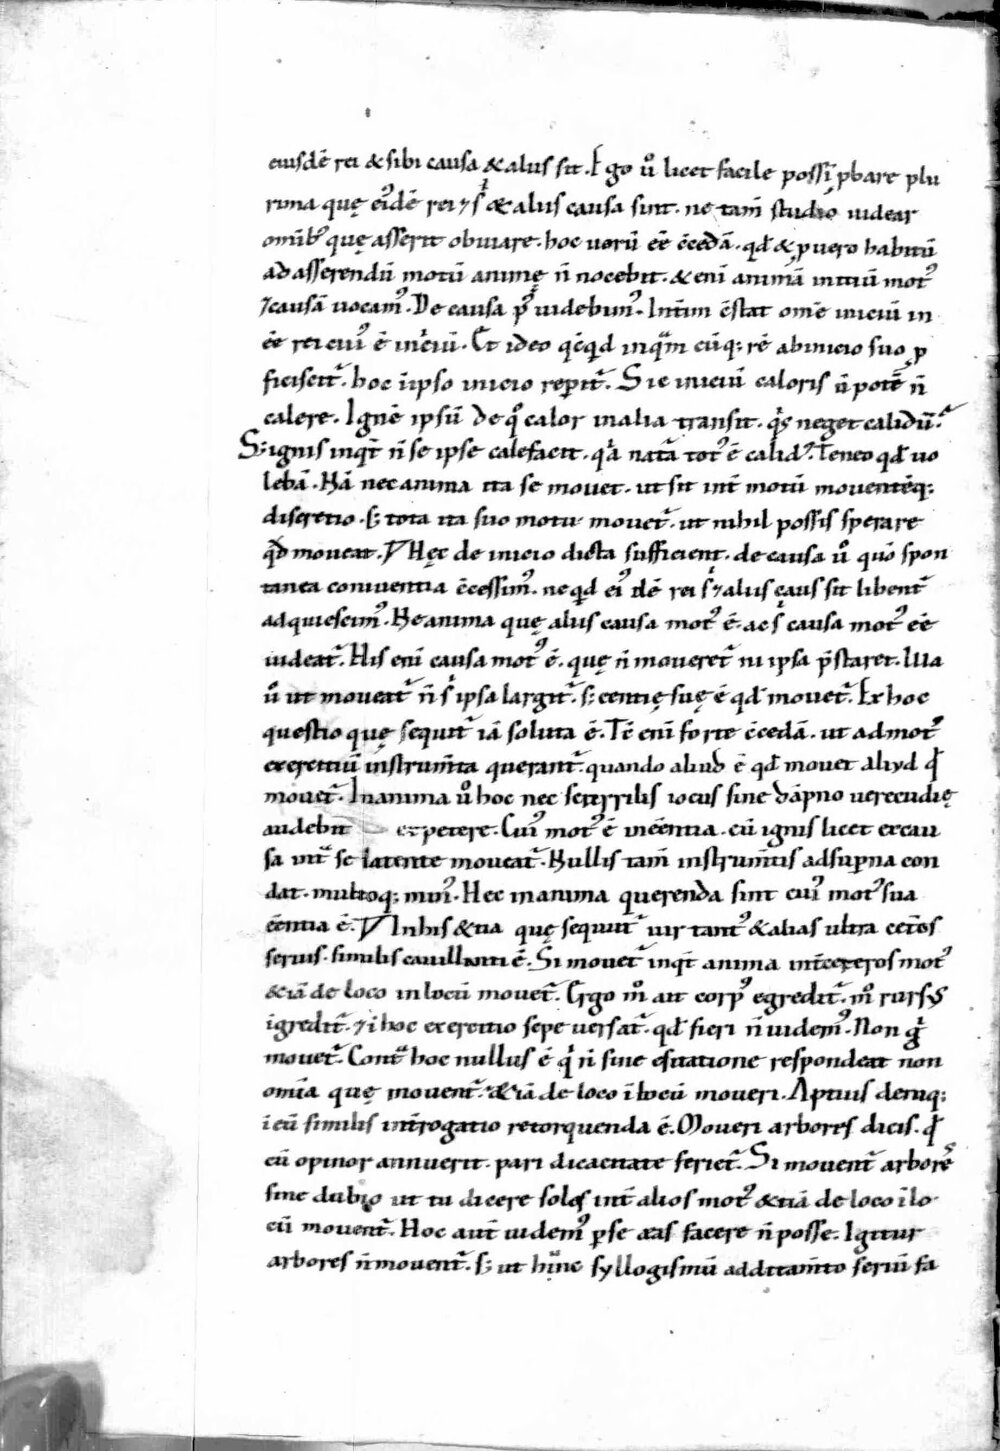 eiusdē rei & sibi causa & alus sit. Ego ů licet facile possī pbare plu
rima quę eiͥdē rei ⁊ sͥ & alus causa sint. ne tam̄ studio uidear
omīb; quę asserit obuiare. hoc uerū eē c̄cedā. qd̄ & p uero habitū
ad asserendū motū animę n̄ nocebit. & eni animā initiū mot᷒
⁊ causā uocam᷒. De causa p᷒ uidebim᷒. Intim c̄stat omē iniciū in
ēe rei cui᷒ ē iniciū. Et ideo qcqd inqͣm cūq; rē ab inicio suo p
ficiscit᷑. hoc ī ipso inicio reperit᷑. Sic iniciū caloris n̄ potē n̄
calere. Ignē ipsū de qͦ calor in alia transit. qͥs neget calidū.
S; ignis inqt n̄ se ipse calefacit. qͣ natā tot᷒ ē calid᷒. Teneo qd̄ uo
lebā. Nā nec anima ita se mouet. ut sit int̄ motū mouentēq;
discretio. s; tota ita suo motu mouet᷑. ut nihil possis sperare
qd̄ moueat. Hęc de inicio dicta sufficient. de causa ů quō spon
tanea coniuentia c̄cessim᷒. ne qd ei᷒ dē rei sͥ ⁊ alus çaus sit libent᷑
adquiescim᷒. Ne anima quę alus causa mot᷒ ē. ac sͥ causa mot᷒ eē
uideat᷑. His eni causa mot᷒ ē. quę n̄ moueret᷑ ni ipsa p̄staret. Illa
ů ut moueat᷑ n̄ sͥ ipsa largit᷑. s; c̄entię suę ē qd̄ mouet᷑. Ex hoc
questio quę sequit᷑ iā soluta ē. Tē eni forte c̄cedā. ut ad mot᷒
exercitiū instrum̄ta querant᷑. quando aliud ē qd̄ mouet aliyd qd̄
mouet᷑. In anima ů hoc nec scurrilis iocus sine dāpno uerecūdię
audebit expetere. Cui᷒ mot᷒ ē in eēntia. cū ignis licet ex cau
sa intͣ se latente moueat᷑. Nullis tam̄ instrum̄tis ad superna con
dat. multoq; min᷒. Nec in anima querenda sint cui᷒ mot᷒ sua
eēntia ē. In his & ia quę sequunt᷑ uir tant᷒ & alias ultra cet̄os
serius. similis cauillanti ē. Si mouet᷑ inqt anima int̄ ceteros mot᷒
& iā de loco in locū mouet᷑. Ergo mͦ ait corp᷒ egredit᷑. mͦ rursꝰ
igredit᷑. ⁊ ī hoc exercitio sepe uersat᷑. qd̄ fieri n̄ uidem᷒. Non gͥ
mouet᷑. Contͣ hoc nullus ē qͥ n̄ sine esitatione respondeat non
omīa quę mouent᷑ & iā de loco ī locū moueri. Aptius deniq;
ī eū similis int̄rogatio retorquenda ē. Moueri arbores dicis. qd̄
cū opinor annuerit. pari dicacitate feriet᷑. Si mouent᷑ arbores
sine dubio ut tu dicere soles int̄ alios mot᷒ & iā de loco ī lo
cū mouent᷑. Hoc aut̄ uidem᷒ p se eas facere n̄ posse. Igitur
arbores n̄ mouent᷑. s; ut hunc syllogismū additam̄to seriū fa